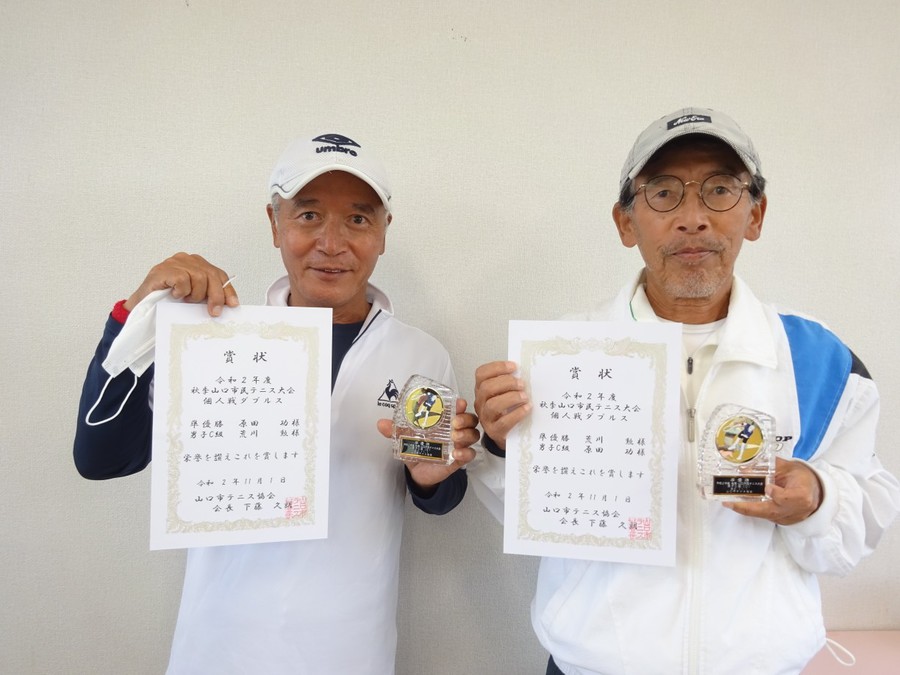 umbro
New Era
賞状
令和2年度
秋季山口市民テニス大会
個人戦ダブルス
準優勝 原田 功様
男子C級 荒川 勉様
栄誉を讃えこれを賞します
令和2年11月1日
山口市テニス協会
会長 下藤 久
le coq
賞状
令和2年度
秋季山口市民テニス大会
個人戦ダブルス
準優勝 荒川 勉様
男子C級 原田 功様
栄誉を讃えこれを賞します
令和2年11月1日
山口市テニス協会
会長 下藤 久
OP